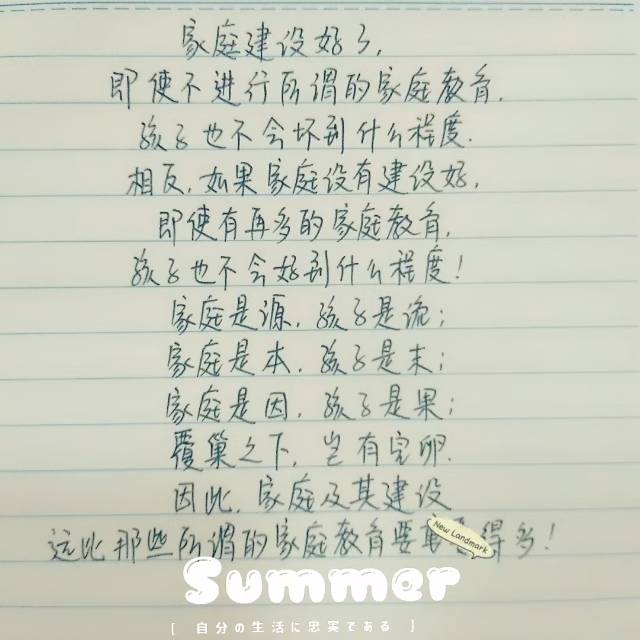 家庭建设好了,
即使不进行所谓的家庭教育.
孩子也不会坏到什么程度.
相反,如果家庭没有建设好,
即使有再多的家庭教育,
孩子也不会好到什么程度!
家庭是源,孩子是流;
家庭是本,孩子是末;
家庭是因,孩子是果;
覆巢之下,岂有完卵.
因此,家庭及其建设
远比那些所谓的家庭教育要得多!
New Landmark
Summer
[ 自分の生活に忠実である ]